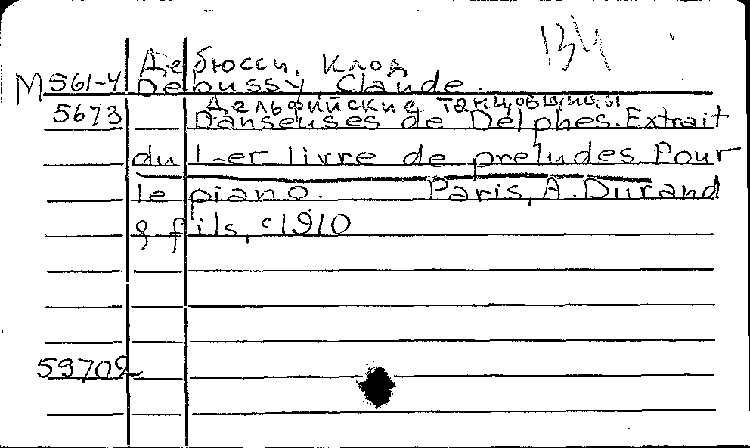 134
Дебюсси, Клод
М 561-4 Debussy Claude.
Дельфийские танцовщицы
5673 Danseuses de Delphes. Extrait
du 1-er livre de preludes Pour
le piano. Paris, A. Durand
& fils, c1910
53709